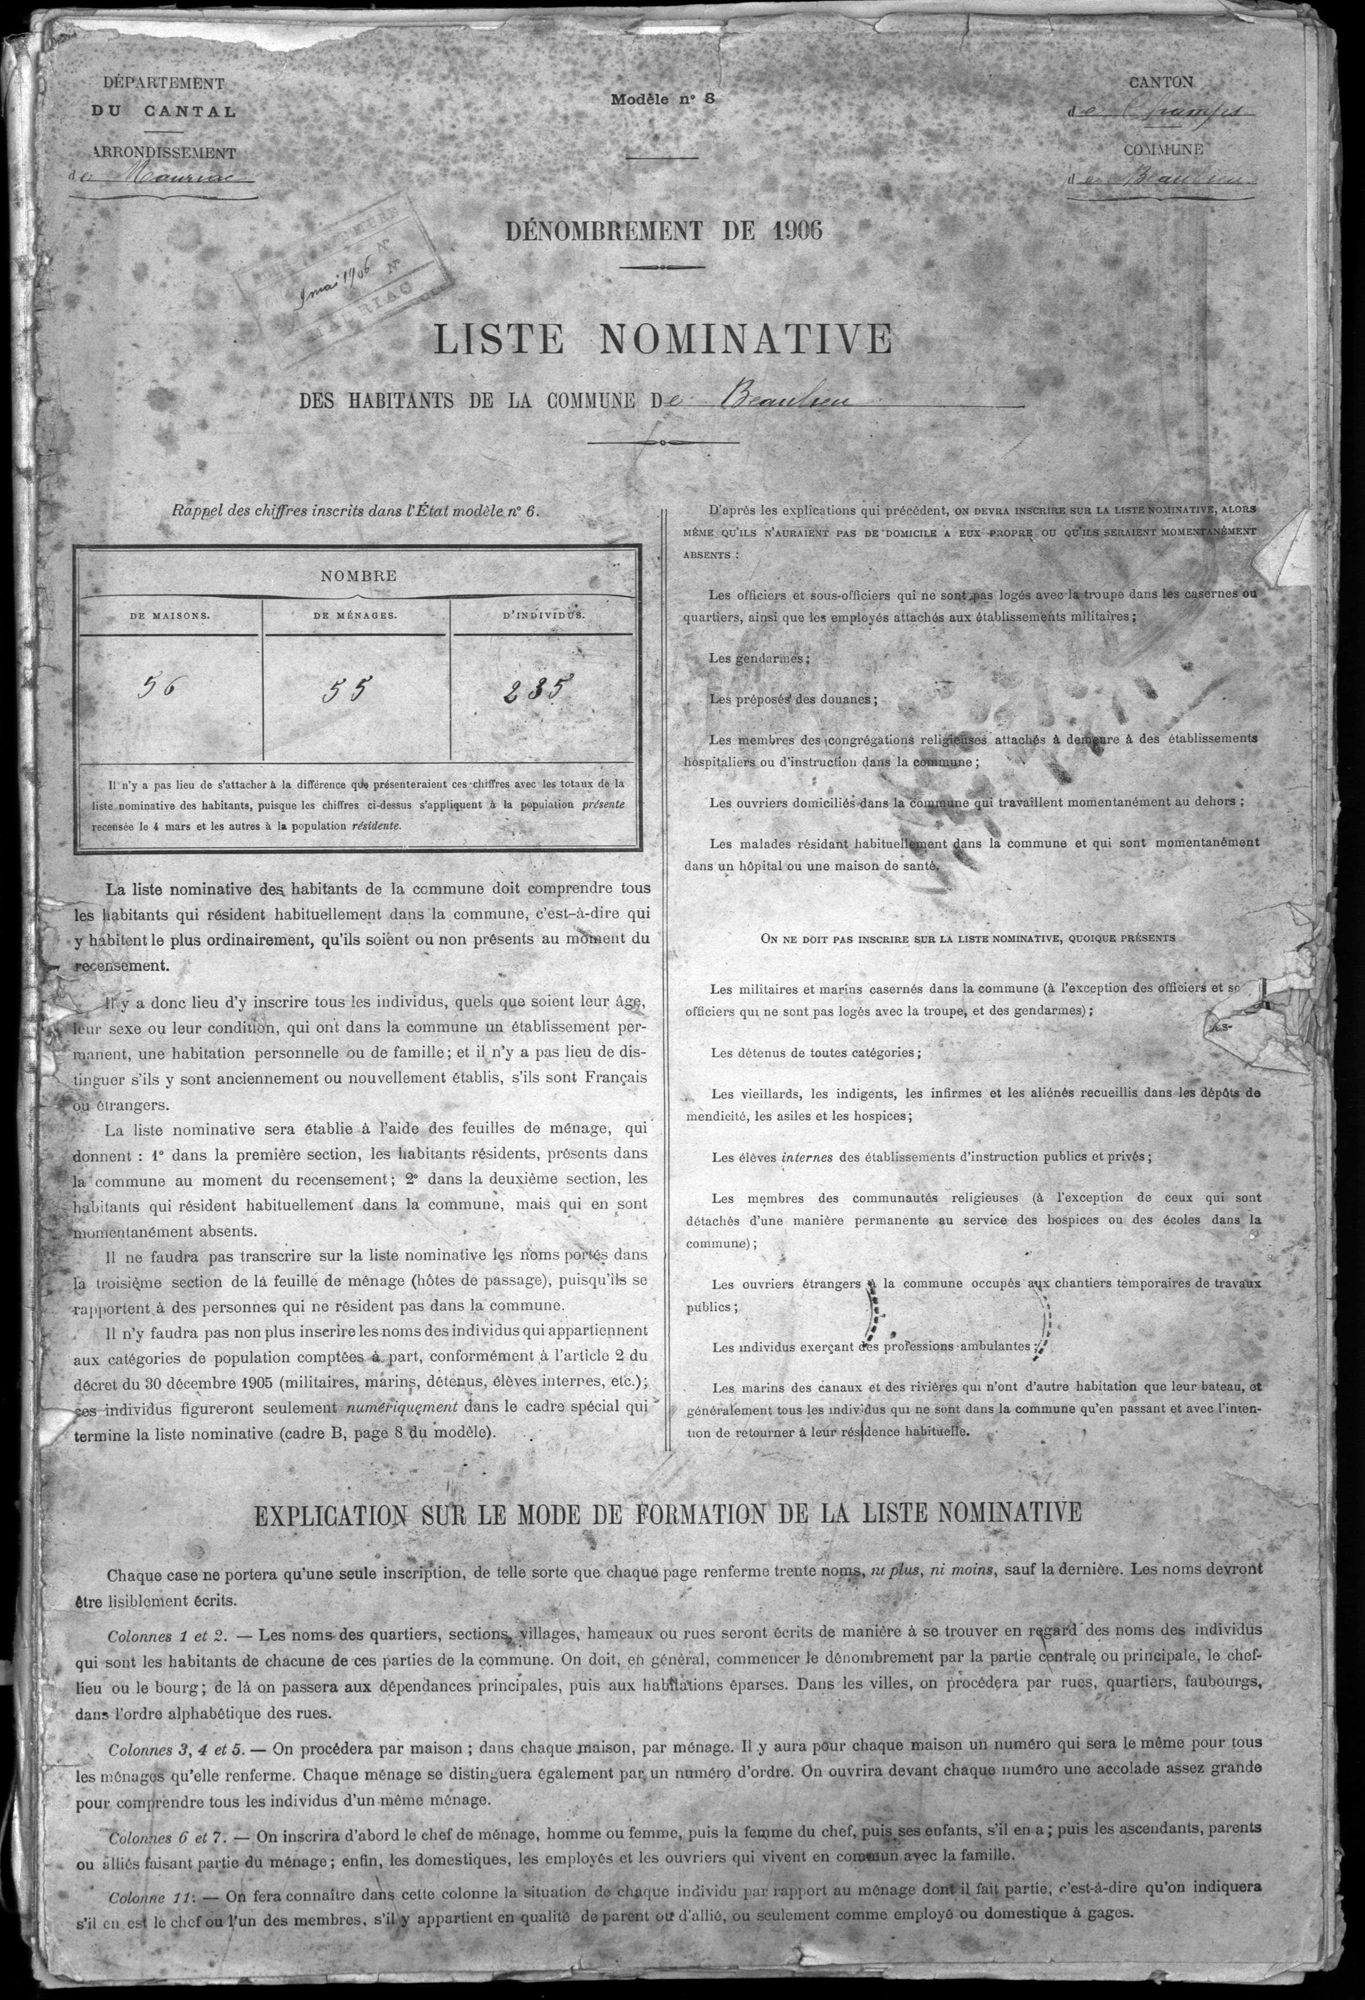 DÉPARTEMENT
DU CANTAL
ARRONDISSEMENT
de Mauriac
Modèle n° 8
CANTON
de Champs
COMMUNE
de Beaulieu
SOUS-PRÉFECTURE
N°
9 mai 1906
N°
MAURIAC
DÉNOMBREMENT DE 1906
LISTE NOMINATIVE
DES HABITANTS DE LA COMMUNE De Beaulieu
Rappel des chiffres inscrits dans l'État modèle n° 6.
NOMBRE
DE MAISONS. DE MÉNAGES. D'INDIVIDUS.
56 55 235
Il n'y a pas lieu de s'attacher à la différence que présenteraient ces chiffres avec les totaux de la
liste nominative des habitants, puisque les chiffres ci-dessus s'appliquent à la population présente
recensée le 4 mars et les autres à la population résidente.
La liste nominative des habitants de la commune doit comprendre tous
les habitants qui résident habituellement dans la commune, c'est-à-dire qui
y habitent le plus ordinairement, qu'ils soient ou non présents au moment du
recensement.
Il y a donc lieu d'y inscrire tous les individus, quels que soient leur âge,
leur sexe ou leur condition, qui ont dans la commune un établissement per-
manent, une habitation personnelle ou de famille; et il n'y a pas lieu de dis-
tinguer s'ils y sont anciennement ou nouvellement établis, s'ils sont Français
ou étrangers.
La liste nominative sera établie à l'aide des feuilles de ménage, qui
donnent : 1° dans la première section, les habitants résidents, présents dans
la commune au moment du recensement; 2° dans la deuxième section, les
habitants qui résident habituellement dans la commune, mais qui en sont
momentanément absents.
Il ne faudra pas transcrire sur la liste nominative les noms portés dans
la troisième section de la feuille de ménage (hôtes de passage), puisqu'ils se
rapportent à des personnes qui ne résident pas dans la commune.
Il n'y faudra pas non plus inscrire les noms des individus qui appartiennent
aux catégories de population comptées à part, conformément à l'article 2 du
décret du 30 décembre 1905 (militaires, marins, détenus, élèves internes, etc.);
ces individus figureront seulement numériquement dans le cadre spécial qui
termine la liste nominative (cadre B, page 8 du modèle).
D'après les explications qui précédent, ON DEVRA INSCRIRE SUR LA LISTE NOMINATIVE, ALORS
MÊME QU'ILS N'AURAIENT PAS DE DOMICILE A EUX PROPRE OU QU'ILS SERAIENT MOMENTANÉMENT
ABSENTS :
Les officiers et sous-officiers qui ne sont pas logés avec la troupe dans les casernes ou
quartiers, ainsi que les employés attachés aux établissements militaires;
Les gendarmes;
Les préposés des douanes;
Les membres des congrégations religieuses attachés à demeure à des établissements
hospitaliers ou d'instruction dans la commune;
Les ouvriers domiciliés dans la commune qui travaillent momentanément au dehors;
Les malades résidant habituellement dans la commune et qui sont momentanément
dans un hôpital ou une maison de santé.
ON NE DOIT PAS INSCRIRE SUR LA LISTE NOMINATIVE, QUOIQUE PRÉSENTS
Les militaires et marins casernés dans la commune (à l'exception des officiers et so
officiers qui ne sont pas logés avec la troupe, et des gendarmes);
Les détenus de toutes catégories;
Les vieillards, les indigents, les infirmes et les aliénés recueillis dans les dépôts de
mendicité, les asiles et les hospices;
Les élèves internes des établissements d'instruction publics et privés;
Les membres des communautés religieuses (à l'exception de ceux qui sont
détachés d'une manière permanente au service des hospices ou des écoles dans la
commune);
Les ouvriers étrangers à la commune occupés aux chantiers temporaires de travaux
publics;
Les individus exerçant des professions ambulantes;
Les marins des canaux et des rivières qui n'ont d'autre habitation que leur bateau, et
généralement tous les individus qui ne sont dans la commune qu'en passant et avec l'inten-
tion de retourner à leur résidence habituelle.
EXPLICATION SUR LE MODE DE FORMATION DE LA LISTE NOMINATIVE
Chaque case ne portera qu'une seule inscription, de telle sorte que chaque page renferme trente noms, ni plus, ni moins, sauf la dernière. Les noms devront
être lisiblement écrits.
Colonnes 1 et 2. — Les noms des quartiers, sections, villages, hameaux ou rues seront écrits de manière à se trouver en regard des noms des individus
qui sont les habitants de chacune de ces parties de la commune. On doit, en général, commencer le dénombrement par la partie centrale ou principale, le chef-
lieu ou le bourg; de là on passera aux dépendances principales, puis aux habitations éparses. Dans les villes, on procédera par rues, quartiers, faubourgs,
dans l'ordre alphabétique des rues.
Colonnes 3, 4 et 5. — On procédera par maison; dans chaque maison, par ménage. Il y aura pour chaque maison un numéro qui sera le même pour tous
les ménages qu'elle renferme. Chaque ménage se distinguera également par un numéro d'ordre. On ouvrira devant chaque numéro une accolade assez grande
pour comprendre tous les individus d'un même ménage.
Colonnes 6 et 7. — On inscrira d'abord le chef de ménage, homme ou femme, puis la femme du chef, puis ses enfants, s'il en a; puis les ascendants, parents
ou alliés faisant partie du ménage; enfin, les domestiques, les employés et les ouvriers qui vivent en commun avec la famille.
Colonne 11: — On fera connaître dans cette colonne la situation de chaque individu par rapport au ménage dont il fait partie, c'est-à-dire qu'on indiquera
s'il en est le chef ou l'un des membres, s'il y appartient en qualité de parent ou d'allié, ou seulement comme employé ou domestique à gages.